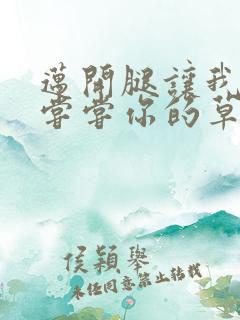 邁開腿讓我
嘗嘗你的草
侯穎舉
未经同意禁止转载